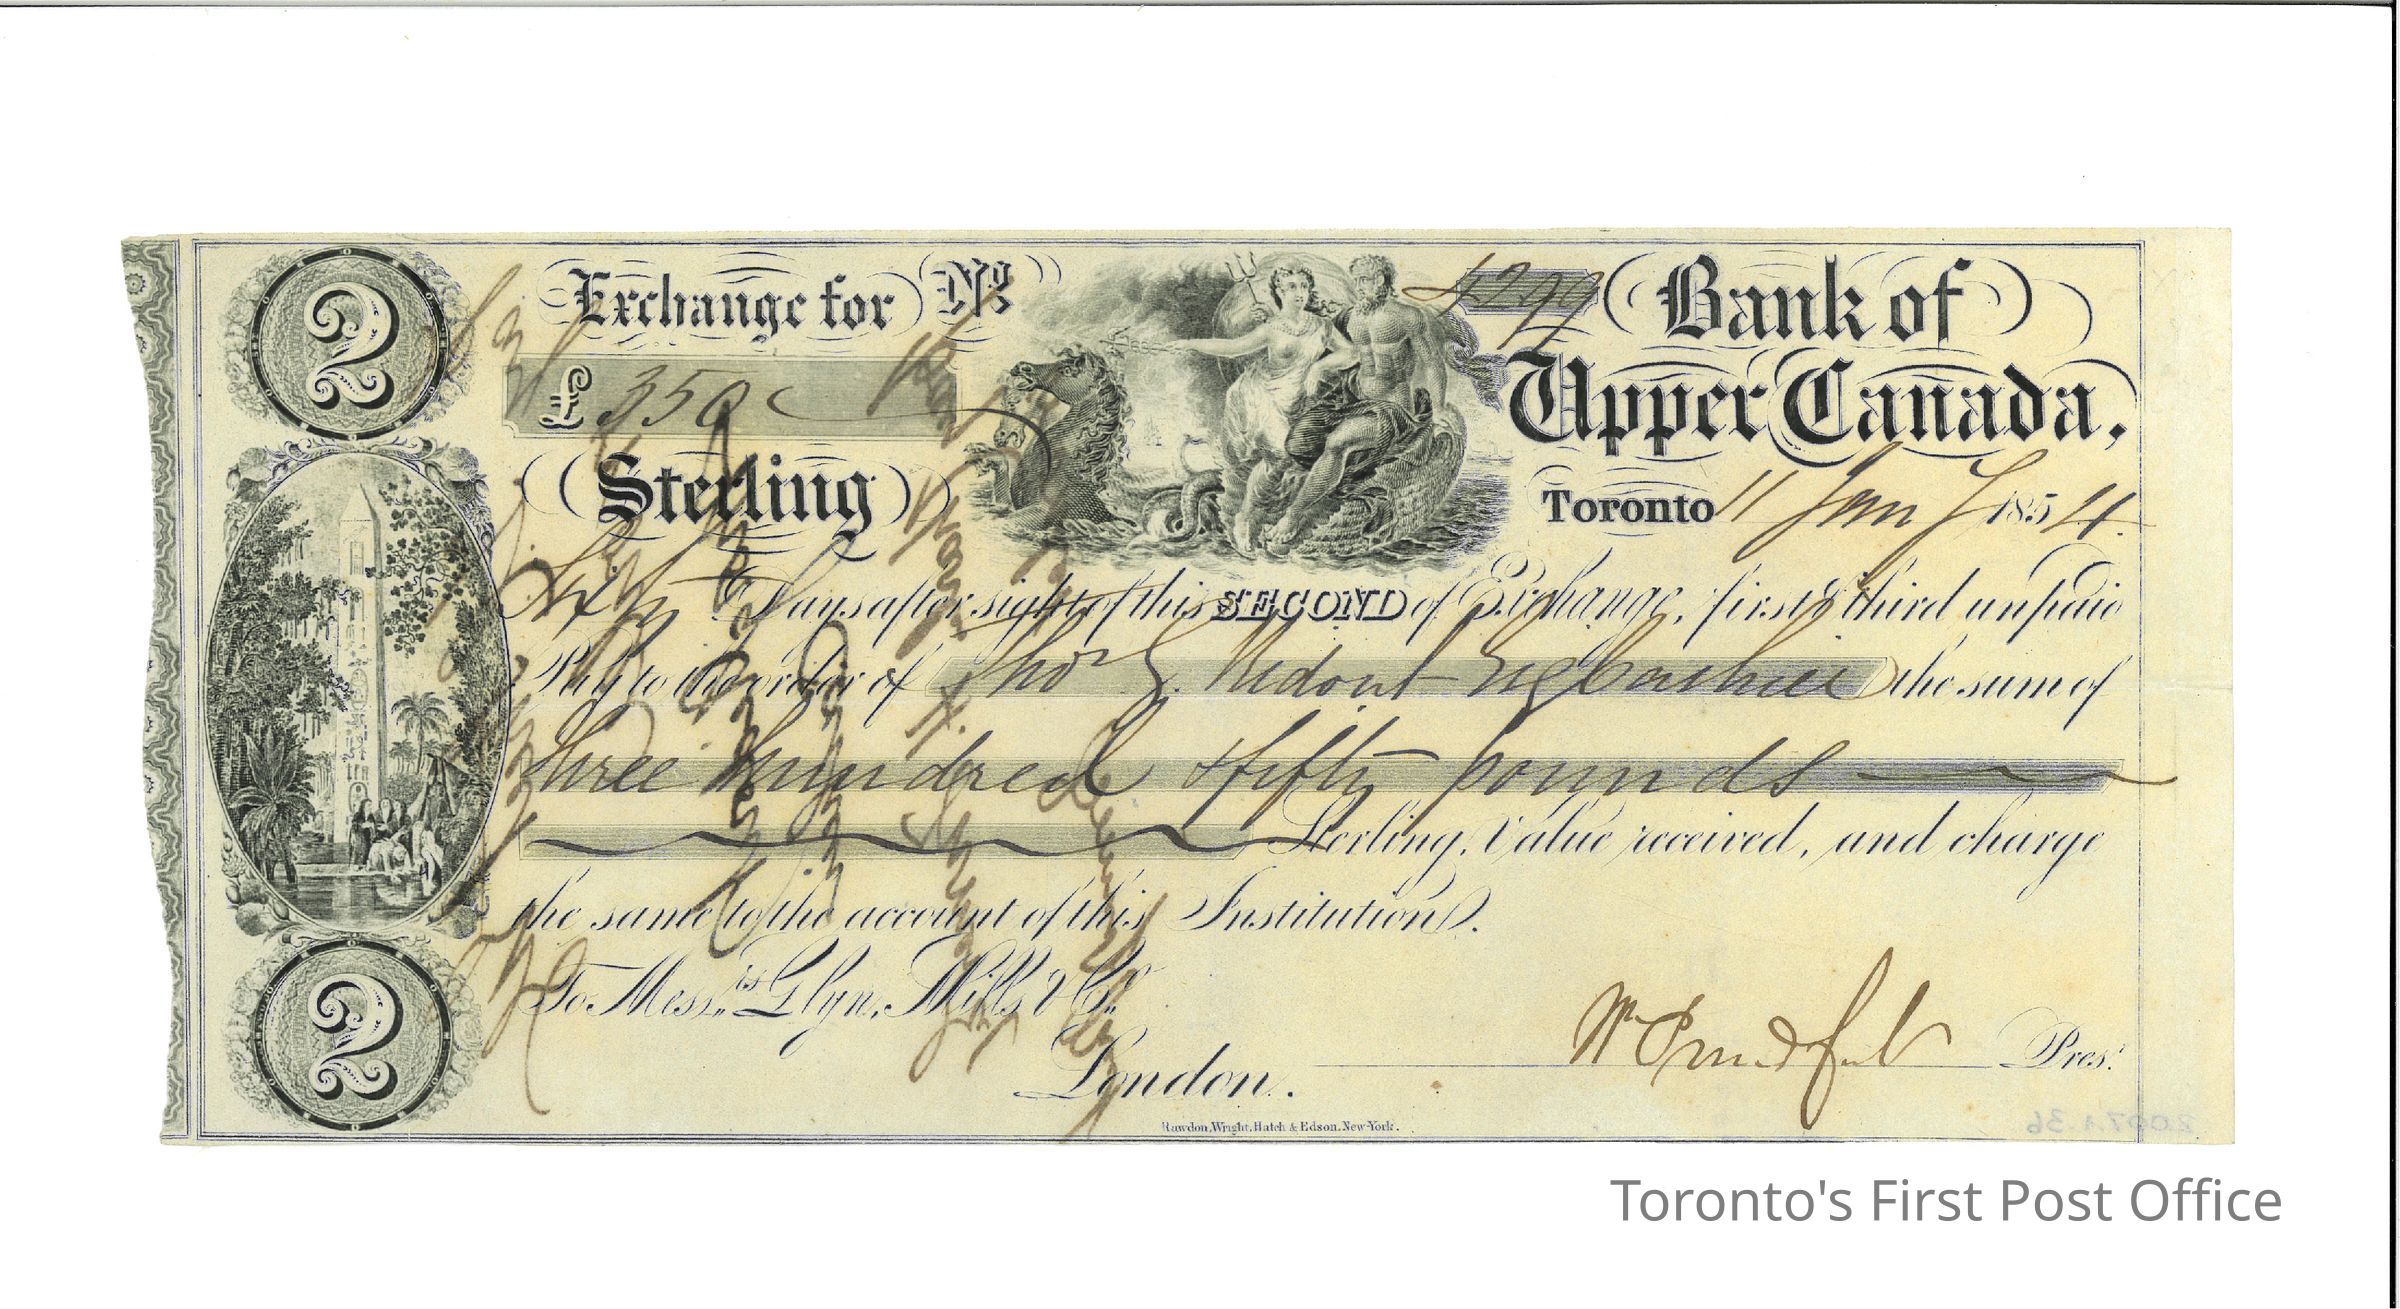 2
Exchange for No 4299
Bank of
£ 350
Upper Canada,
Sterling
Toronto 11 Jany 1854.
Sixty Days after sight of this SECOND of Exchange, first & third unpaid
Pay to the order of Thos G. Ridout Esq Cashier the sum of
three hundred & fifty pounds
Sterling, Value received, and charge
the same to the account of this Institution.
To Messrs Glyn, Mills & Co.
London.
Wm Proudfoot Pres.t
2
Rawdon, Wright, Hatch & Edson, New-York.
2007.1.36
Toronto's First Post Office